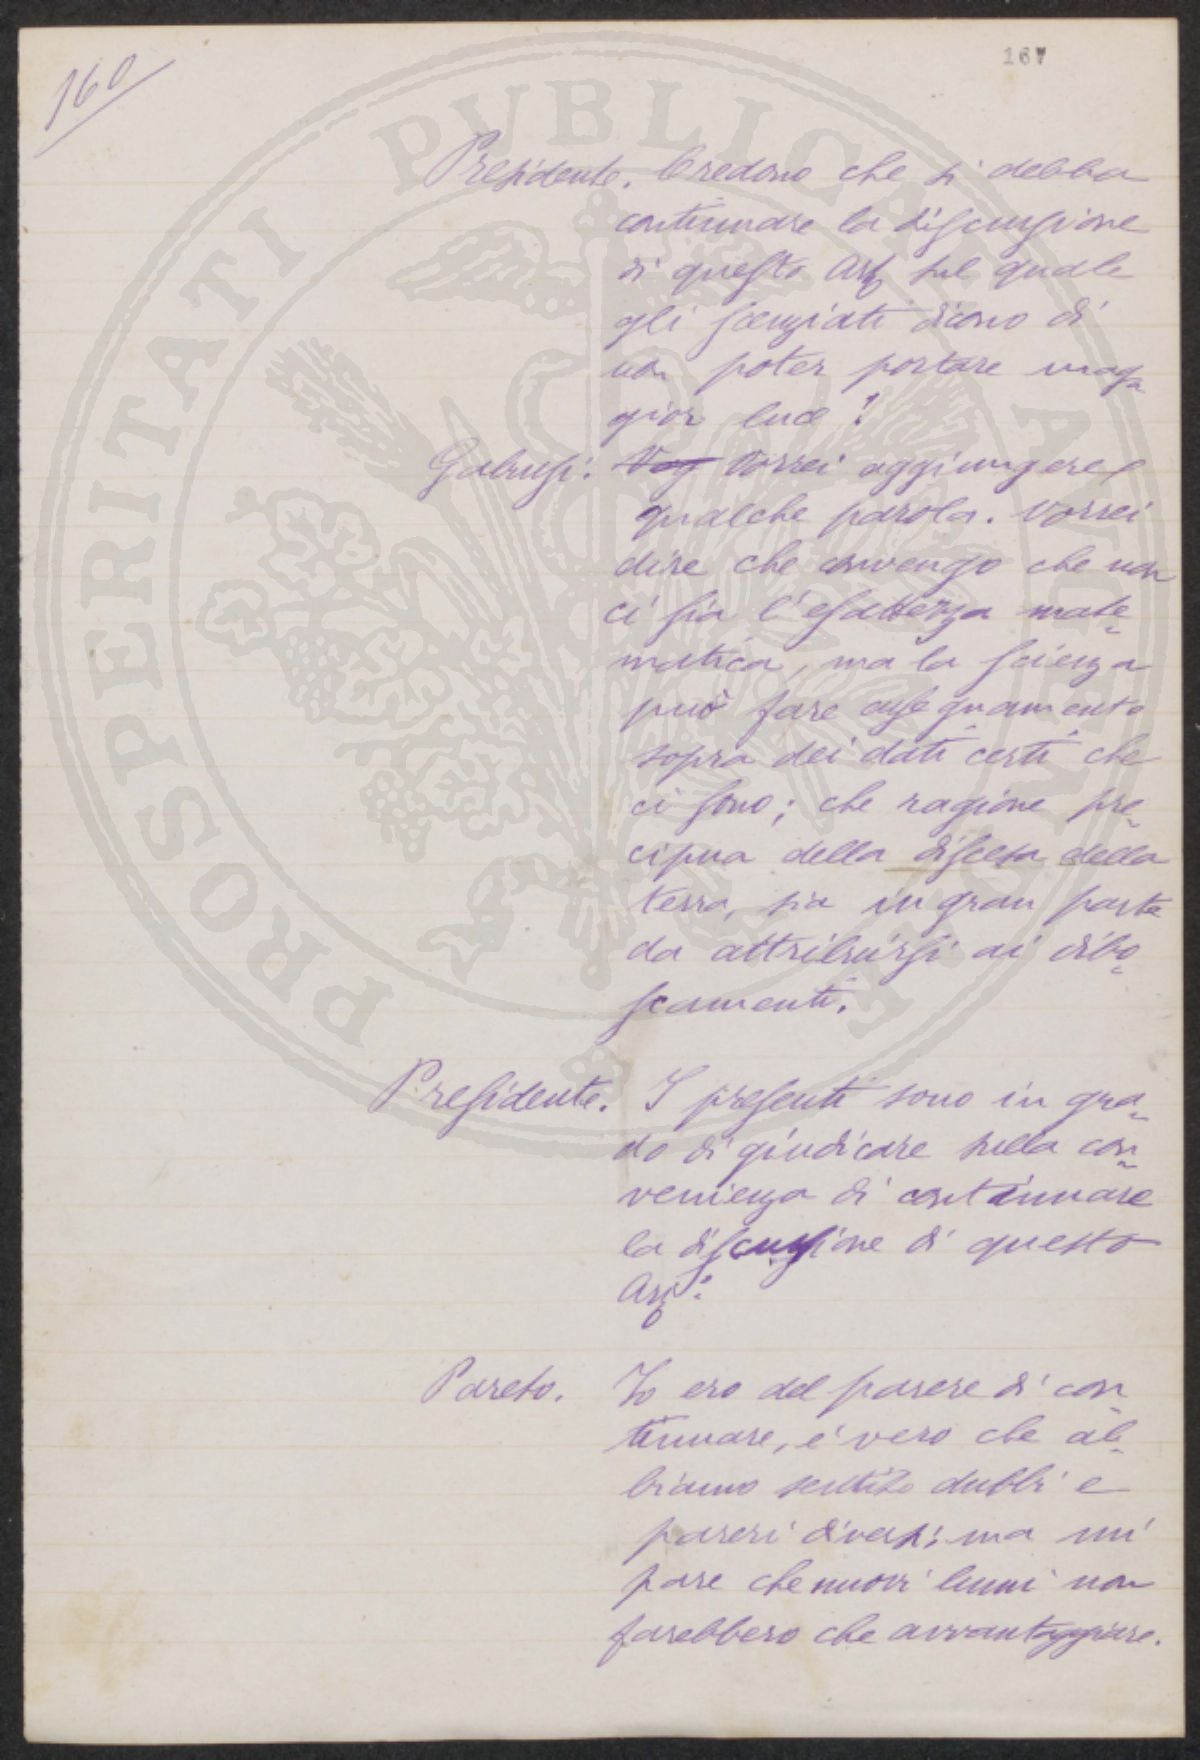 160
167
PROSPERITATI PUBLICAE AUGENDAE
Presidente. Credono che si debba
continuare la discussione
di questo Arg. sul quale
gli scenziati dicono di
non poter portare mag=
gior luce?
Gabussi. Vog Vorrei aggiungere
qualche parola. Vorrei
dire che convengo che non
ci sia l'esattezza mate=
matica, ma la scienza
può fare assegnamento
sopra dei dati certi che
ci sono; che ragione pre=
cipua della discesa della
terra, sia in gran parte
da attribuirsi ai dibo=
scamenti.
Presidente. I presenti sono in gra=
do di giudicare sulla con=
venienza di continuare
la discussione di questo
Arg:
Pareto. Io ero del parere di con=
tinuare, è vero che ab=
biamo sentito dubbi e
pareri diversi; ma mi
pare che nuovi lumi non
farebbero che avvantaggiare.